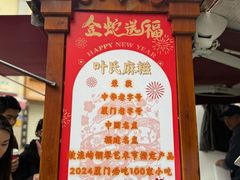 金蛇送福
HAPPY NEW YEAR
叶氏麻糍
荣获
中华老字号
厦门老字号
中国名点
福建名点
鼓浪屿钢琴艺术节指定产品
2024厦门必吃100家小吃